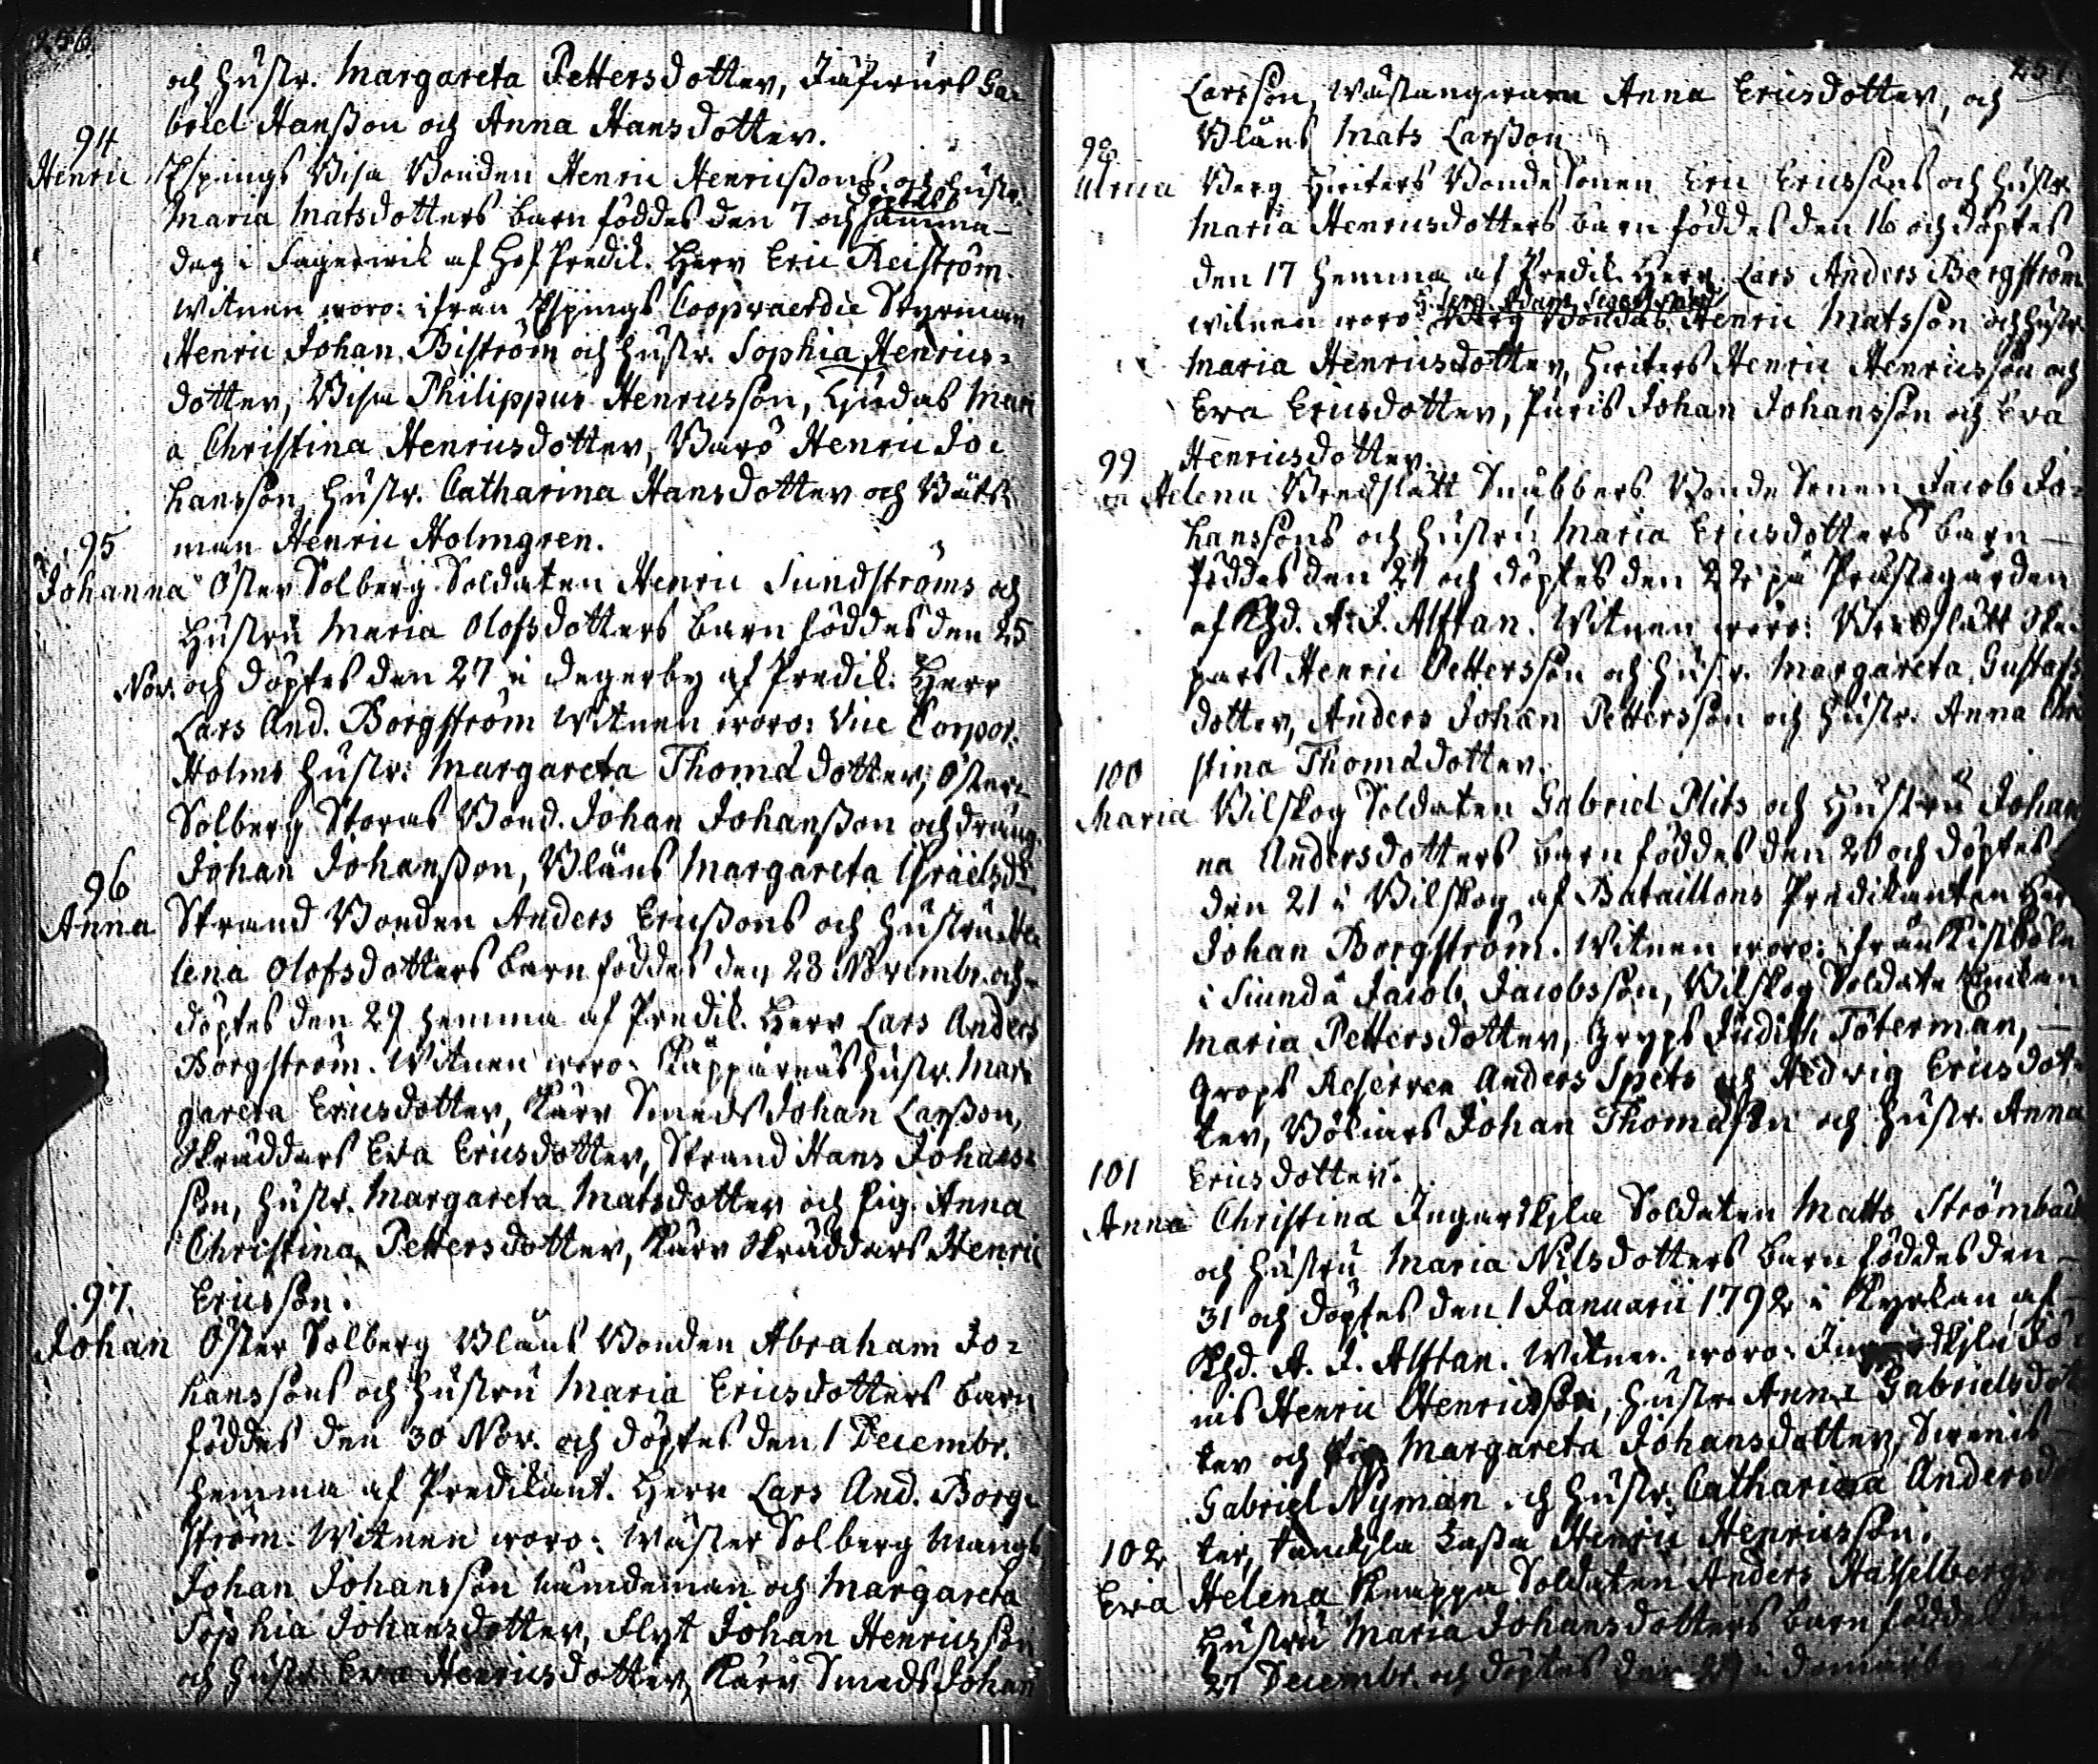 256
och Hustr. Margareta Pettersdotter, Ga-
briel Hansson och Anna Hansdotter.
94
Henric Espings Visa Bonden Henric Henricssons och Hustr.
döptes
Maria Matsdotters barn föddes den 7 och samma
dag i Fagerwik af Hof Predik. Herr Eric Reiström.
Witnen woro: ifrån Espings Coopvaerdie Styrman
Henric Johan Biström och Hustr. Sophia Henrics-
dotter, Visa Philippus Henricsson, Mari
a Christina Henricsdotter, Barö Henric Jo-
hansson, Hustr. Catharina Hansdotter och Båts-
man Henric Holmgren.
95
Johanna Öster Solberg Soldaten Henric Sundströms och
Hustru Maria Olofsdotters barn föddes den 25
Nov. och döptes den 27 i Degerby af Predik. Herr
Lars And. Borgström Witnen woro: Vice Corpor.
Holms Hustr: Margareta Thomadotter, Öster
Solberg Storas Bond. Johan Johansson och dräng
Johan Johansson, Blåns Margareta Israelsd:
96
Anna Strand Bonden Anders Ericssons och Hustru He
lena Olofsdotters barn föddes den 28 Novembr. och
döptes den 29 hemma af Predik. Herr Lars Anders
Borgström. Witnen woro: Käpparnäs Hustr. Mar-
gareta Ericsdotter, Kärr Smeds Johan Larsson,
Skräddars Eva Ericsdotter, Strand Hans Johans-
son, Hustr. Margareta Matsdotter och Pig. Anna
Christina Pettersdotter, Kärr Skräddars Henric
Ericsson.
97.
Johan Öster Solberg Blåns Bonden Abraham Jo-
hanssons och Hustru Maria Ericsdotters barn
föddes den 30 Nov. och döptes den 1 Decembr.
hemma af Predikant. Herr Lars And. Borg-
ström. Witnen woro: Wäster Solberg Mangs
Johan Johansson Nämdeman och Margareta
Sophia Johansdotter, Flyt Johan Henricsson
och Hustr. Eva Henricsdotter, Kärr Smeds Johan
257
Larsson, Anna Ericsdotter, och
Blåns Mats Larsson
98
Ulrica Berg Hwiters Bonde Sonen Eric Ericssons och Hustr.
Maria Henricsdotters barn föddes den 16 och döptes
den 17 hemma af Predik. Herr. Lars Anders Borgström
Adam
witnen woro: Berg Bondas Henric Matsson och Hustr.
Maria Henricsdotter, Hwiters Henric Henricsson och
Eva Ericsdotter, Puris Johan Johansson och Eva
Henricsdotter.
99
Helena Bredslätt Snubbers Bonde Sonen Jacob Jo-
hanssons och Hustru Maria Ericsdotters barn
föddes den 21 och döptes den 22 på Prästegården
af Khd. A. J. Alftan. Witnen woro: Bredslätt Ske-
pars Henric Pettersson och Hustr. Margareta Gustafs
dotter, Anders Johan Pettersson och Hustr. Anna Chri
stina Thomadotter.
100
Maria Bilskog Soldaten Gabriel Plits och Hustru Johan
na Andersdotters barn föddes den 20 och döptes
den 21 i Bilskog af Bataillons Predikanten Her
Johan Borgström. Witnen woro: ifrån Kisböle
i Siundå Jacob Jacobsson, Bilskog Soldate Enkan
Maria Pettersdotter, Judith Töterman,
Grops Reserven Anders Spets och Hedvig Ericsdot-
ter, Bölnars Johan Thomasson och Hustr. Anna
Ericsdotter.
101
Anna Christina Ingarskyla Soldaten Matts Strömbäck
och Hustru Maria Nilsdotters barn föddes den
31 och döptes den 1 Januarii 1792 i Kyrkan af
Khd. A. J. Alftan. Witnen. woro: Ingarskyla Jö-
nis Henric Henricsson, Hustr. Anna Gabrielsdot
ter och Pig. Margareta Johansdotter, Swenis
Gabriel Nyman och Hustr. Catharina Andersdo
ter, Henric Henricsson.
102
Eva Helena Knappa Soldaten Anders Hasselbergs
Hustru Maria Johansdotters barn föddes den
27 Decembr. och döptes den 29 i